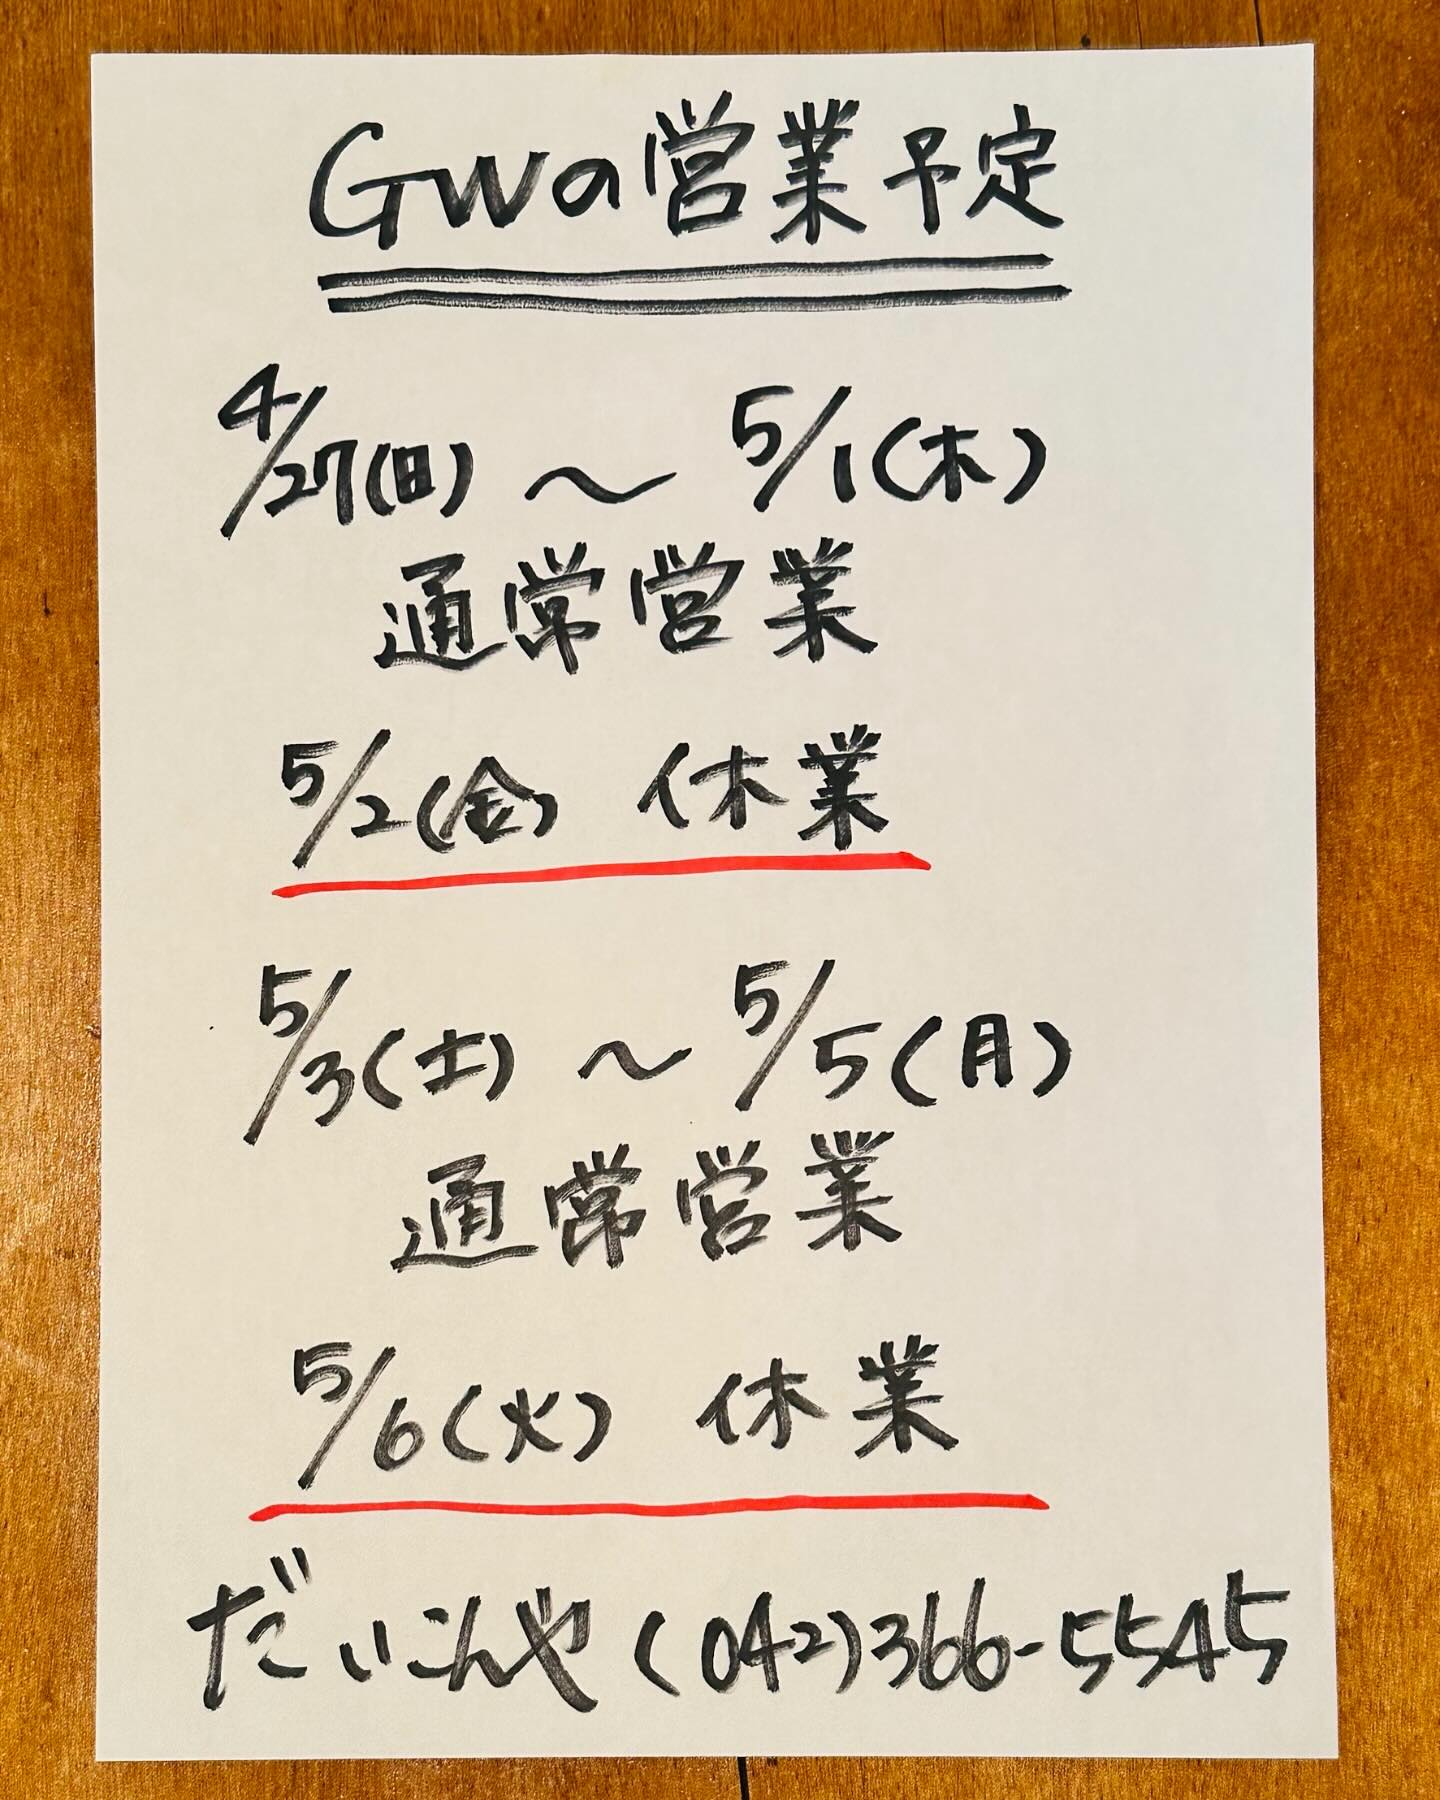 GWの営業予定
4/27(日)〜5/1(木)
通常営業
5/2(金) 休業
5/3(土)〜5/5(月)
通常営業
5/6(火) 休業
だいこんや(042)366-5545